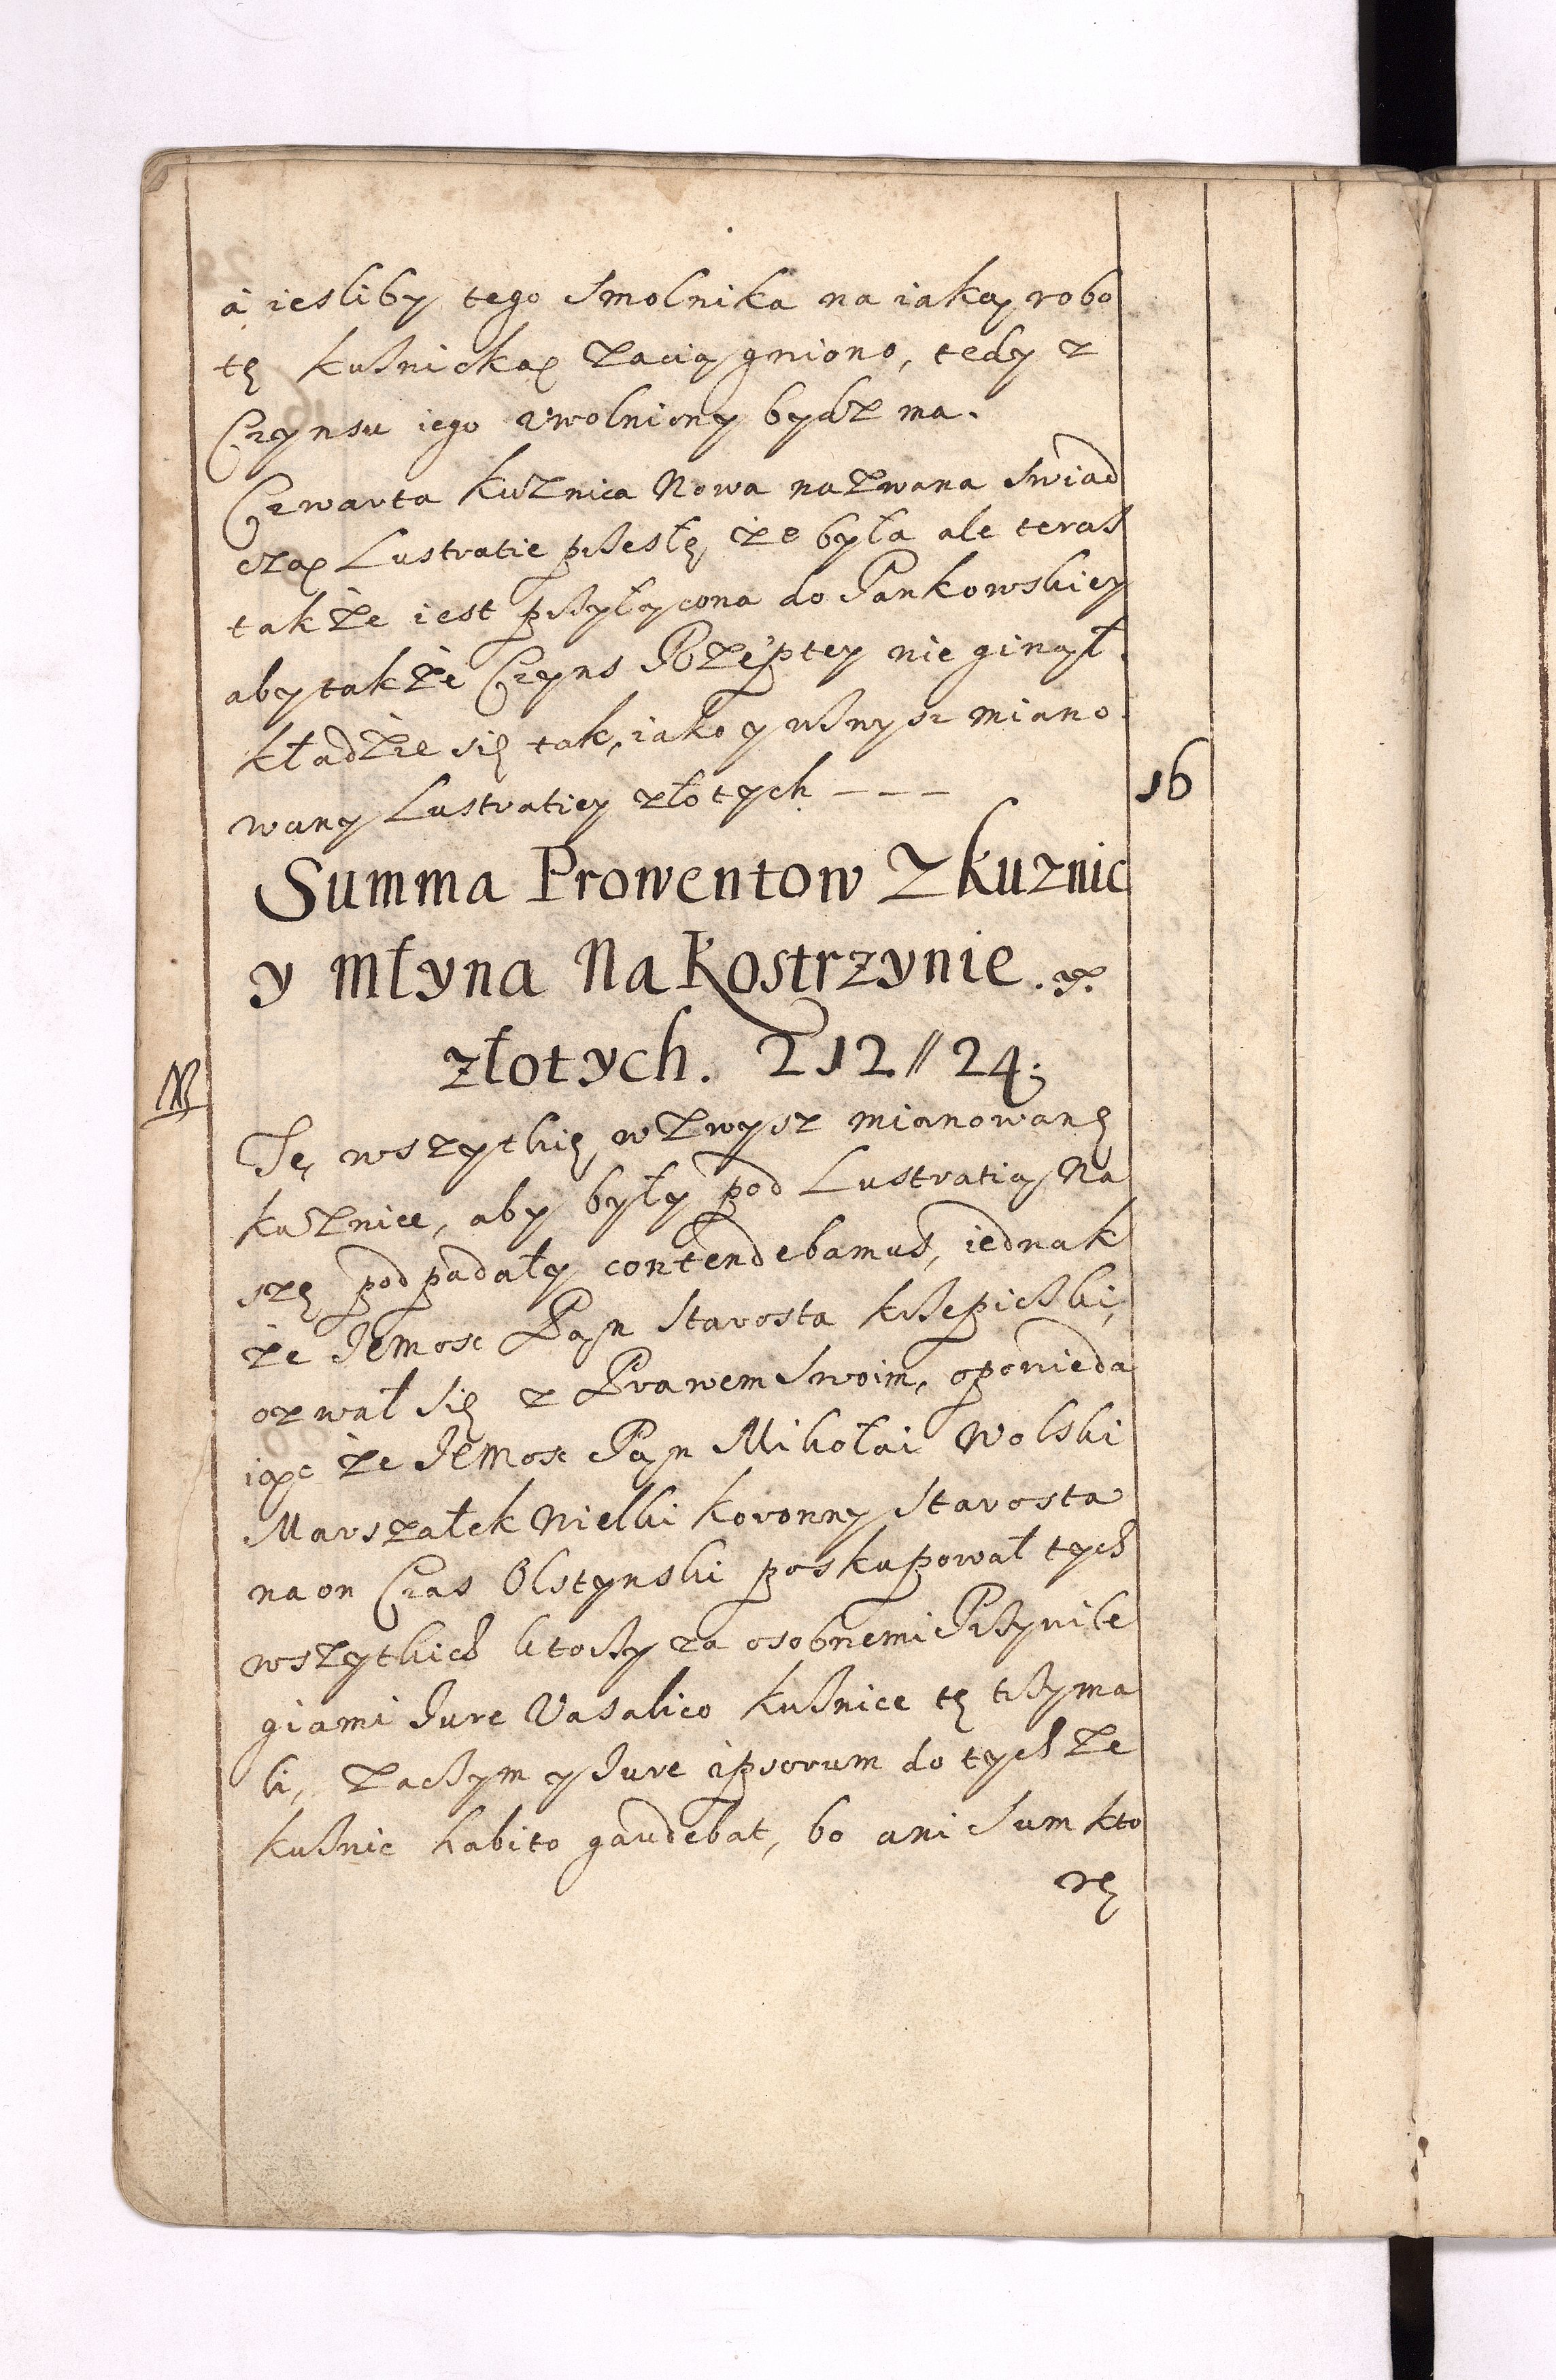 a iesliby tego Smolnika na iaką robo
tę kuźnicką zaciągniono, tedy z
Czynsu iego uwolniony bydz ma.
Czwarta kuznica Nowa nazwana swiad
czą Lustratie przeslę, że była ale teraz
takze iest przyłączona do Pankowskiey
aby takze Czyns Rzeptey nie ginął.
kładzie się tak, iako y wznysz miano
wany Lustratiey złotych ---
16
Summa Prowentow Z kuznic
y młyna Na Kostrzynie.
złotych. 212 // 24;
NB
Tę wszytkię wzwysz mianowanę
kuznice, aby były pod Lustratią Na
szę podpadały contendebamus, iednak
ze Jemosc Pan Starosta krzepiczki,
ozwał się z Prawem Swoim, opowieda
iąc ze Jemosc Pan Mikołai Wolski
Marszałek Wielki koronny Starosta
na on Czas Olstynski poskupował tych
wszytkich ktorzy za osobnemi Przywile
giami Jure Vasalico kuźnice tę trzyma
li, zaczym y Jure ipsorum do tych ze
kuźnic habito gaudebat, bo ani Sum kto
rę